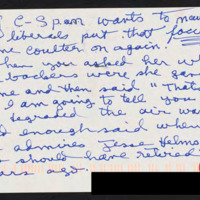 C-Span wants to
liberals put that
ne coulter on again.
hen you asked her wh
backers were she
me and then said "That's
I am going to tell you
degraded the air wa
d enough said when
admires Jesse Helms
should have retired
ars ago.